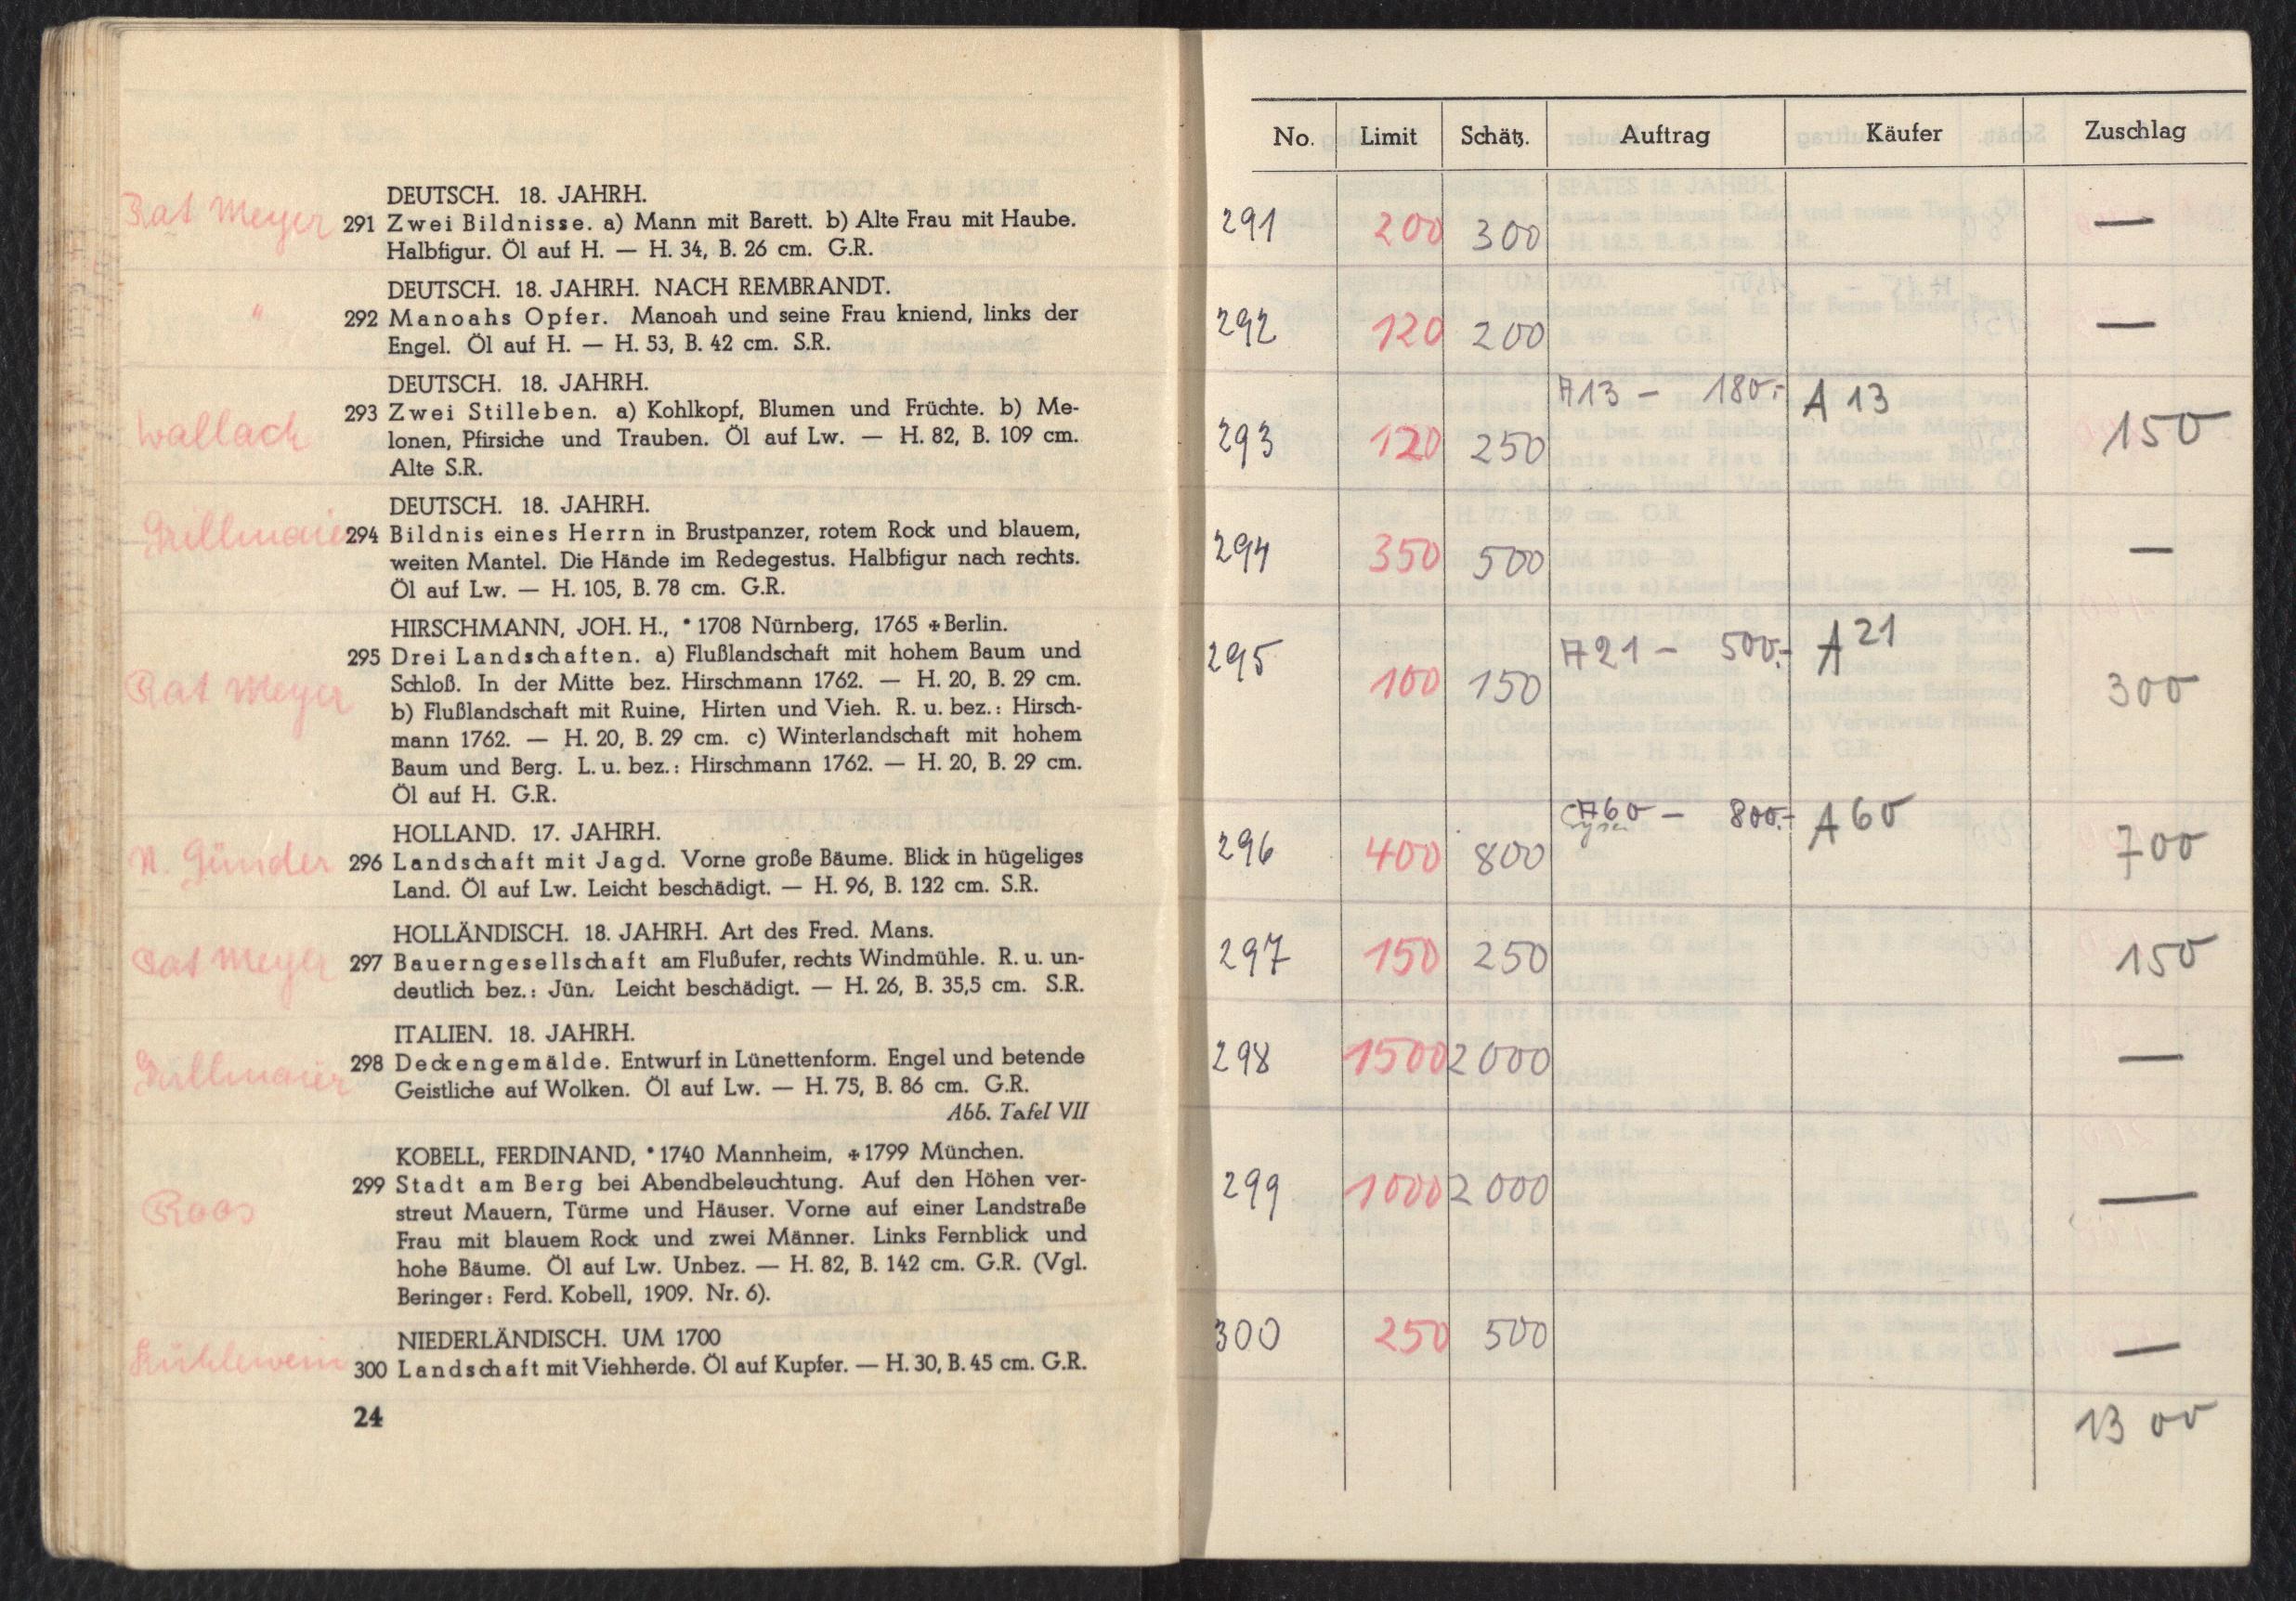 Rat Meyer
DEUTSCH. 18. JAHRH.
291 Zwei Bildnisse. a) Mann mit Barett. b) Alte Frau mit Haube.
Halbfigur. Öl auf H. — H. 34, B. 26 cm. G.R.
DEUTSCH. 18. JAHRH. NACH REMBRANDT.
"
292 Manoahs Opfer. Manoah und seine Frau kniend, links der
Engel. Öl auf H. — H. 53, B. 42 cm. S.R.
DEUTSCH. 18. JAHRH.
Wallach
293 Zwei Stilleben. a) Kohlkopf, Blumen und Früchte. b) Me-
lonen, Pfirsiche und Trauben. Öl auf Lw. — H. 82, B. 109 cm.
Alte S.R.
DEUTSCH. 18. JAHRH.
Grillmaier
294 Bildnis eines Herrn in Brustpanzer, rotem Rock und blauem,
weiten Mantel. Die Hände im Redegestus. Halbfigur nach rechts.
Öl auf Lw. — H. 105, B. 78 cm. G.R.
HIRSCHMANN, JOH. H., * 1708 Nürnberg, 1765 ✠ Berlin.
295 Drei Landschaften. a) Flußlandschaft mit hohem Baum und
Rat Meyer
Schloß. In der Mitte bez. Hirschmann 1762. — H. 20, B. 29 cm.
b) Flußlandschaft mit Ruine, Hirten und Vieh. R. u. bez.: Hirsch-
mann 1762. — H. 20, B. 29 cm. c) Winterlandschaft mit hohem
Baum und Berg. L. u. bez.: Hirschmann 1762. — H. 20, B. 29 cm.
Öl auf H. G.R.
HOLLAND. 17. JAHRH.
N. Günder
296 Landschaft mit Jagd. Vorne große Bäume. Blick in hügeliges
Land. Öl auf Lw. Leicht beschädigt. — H. 96, B. 122 cm. S.R.
HOLLÄNDISCH. 18. JAHRH. Art des Fred. Mans.
Rat Meyer
297 Bauerngesellschaft am Flußufer, rechts Windmühle. R. u. un-
deutlich bez.: Jün. Leicht beschädigt. — H. 26, B. 35,5 cm. S.R.
ITALIEN. 18. JAHRH.
Grillmaier
298 Deckengemälde. Entwurf in Lünettenform. Engel und betende
Geistliche auf Wolken. Öl auf Lw. — H. 75, B. 86 cm. G.R.
Abb. Tafel VII
KOBELL, FERDINAND, * 1740 Mannheim, ✠ 1799 München.
299 Stadt am Berg bei Abendbeleuchtung. Auf den Höhen ver-
Roos
streut Mauern, Türme und Häuser. Vorne auf einer Landstraße
Frau mit blauem Rock und zwei Männer. Links Fernblick und
hohe Bäume. Öl auf Lw. Unbez. — H. 82, B. 142 cm. G.R. (Vgl.
Beringer: Ferd. Kobell, 1909. Nr. 6).
NIEDERLÄNDISCH. UM 1700
Kühlewein
300 Landschaft mit Viehherde. Öl auf Kupfer. — H. 30, B. 45 cm. G.R.
24
No. Limit Schätz. Auftrag Käufer Zuschlag
291 200 300 —
292 120 200 —
293 120 250 A13 – 180.- A 13 150
294 350 500 —
295 100 150 A21 – 500.- A 21 300
296 400 800 A60 – 800.- A 60 700
297 150 250 150
298 1500 2000 —
299 1000 2000 —
300 250 500 —
1300